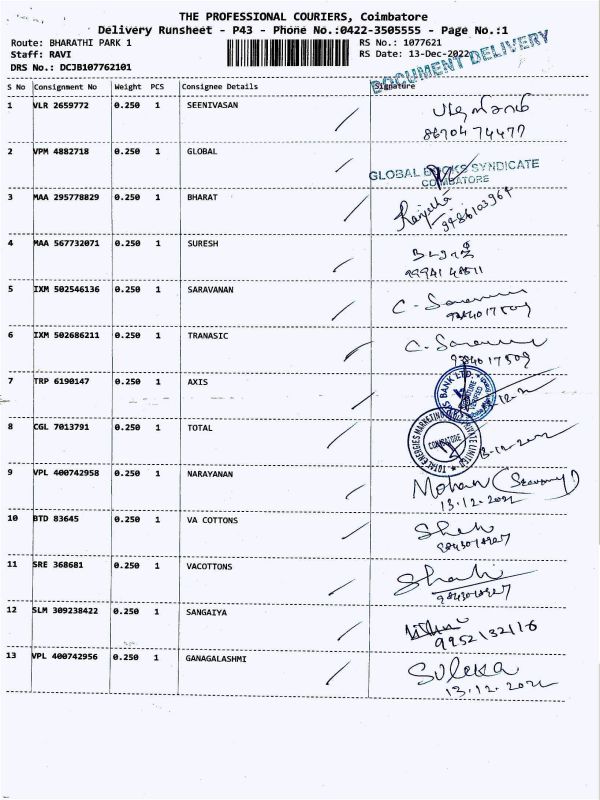 THE PROFESSIONAL COURIERS, Coimbatore
Delivery Runsheet - P43 - Phone No.:0422-3505555 - Page No.:1
Route: BHARATHI PARK 1 RS No.: 1077621
Staff: RAVI RS Date: 13-Dec-2022
DRS No.: DCJB107762101
DOCUMENT DELIVERY
S No Consignment No Weight PCS Consignee Details Signature
1 VLR 2659772 0.250 1 SEENIVASAN
86704 74477
2 VPM 4882718 0.250 1 GLOBAL
GLOBAL BOOKS SYNDICATE
COIMBATORE
3 MAA 295778829 0.250 1 BHARAT
4 MAA 567732071 0.250 1 SURESH
5 IXM 502546136 0.250 1 SARAVANAN
6 IXM 502686211 0.250 1 TRANASIC
9384017509
7 TRP 6190147 0.250 1 AXIS
BANK LTD.
8 CGL 7013791 0.250 1 TOTAL
TOTAL ENERGIES MARKETING PRIVATE LIMITED
COIMBATORE
13-12-2022
9 VPL 400742958 0.250 1 NARAYANAN
Mohan
13.12.2022
10 BTD 83645 0.250 1 VA COTTONS
11 SRE 368681 0.250 1 VACOTTONS
12 SLM 309238422 0.250 1 SANGAIYA
9952132116
13 VPL 400742956 0.250 1 GANAGALASHMI
Suleka
13.12.2022